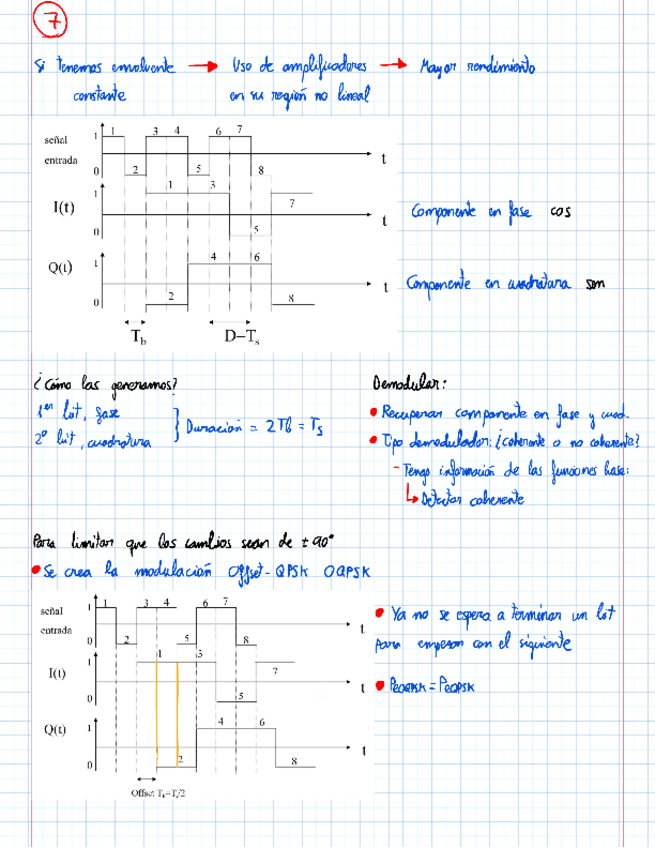 7
Si tenemos envolvente → Uso de amplificadores → Mayor rendimiento
constante en su región no lineal
señal
entrada
1 0 1 2 3 4 5 6 7 8 t
I(t)
1 0 1 3 5 7 t
Componente en fase cos
Q(t)
1 0 2 4 6 8 t
Componente en cuadratura sen
T_b D-T_s
¿Cómo las generamos?
1er bit, fase
2º bit, cuadratura
Duración = 2Tb = Ts
Demodular:
• Recuperar componente en fase y cuad.
• Tipo demodulador: ¿coherente o no coherente?
- Tengo información de las funciones base:
↳ Detector coherente
Para limitar que los cambios sean de ± 90°
• Se crea la modulación Offset-QPSK OQPSK
señal
entrada
1 0 1 2 3 4 5 6 7 8 t
I(t)
1 0 1 3 5 7 t
Q(t)
1 0 2 4 6 8 t
Offset T_b=T_s/2
• Ya no se espera a terminar un bit
para empezar con el siguiente
• PeOQPSK = PeQPSK